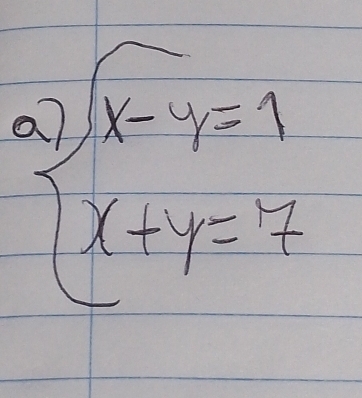 a) x-y=1
x+y=7